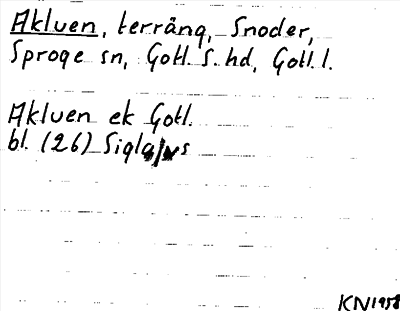 Akluen, terräng, Snoder,
Sproge sn, Gotl. S. hd, Gotl. l.
Akluen ek Gotl.
bl. (26)
KN 1958